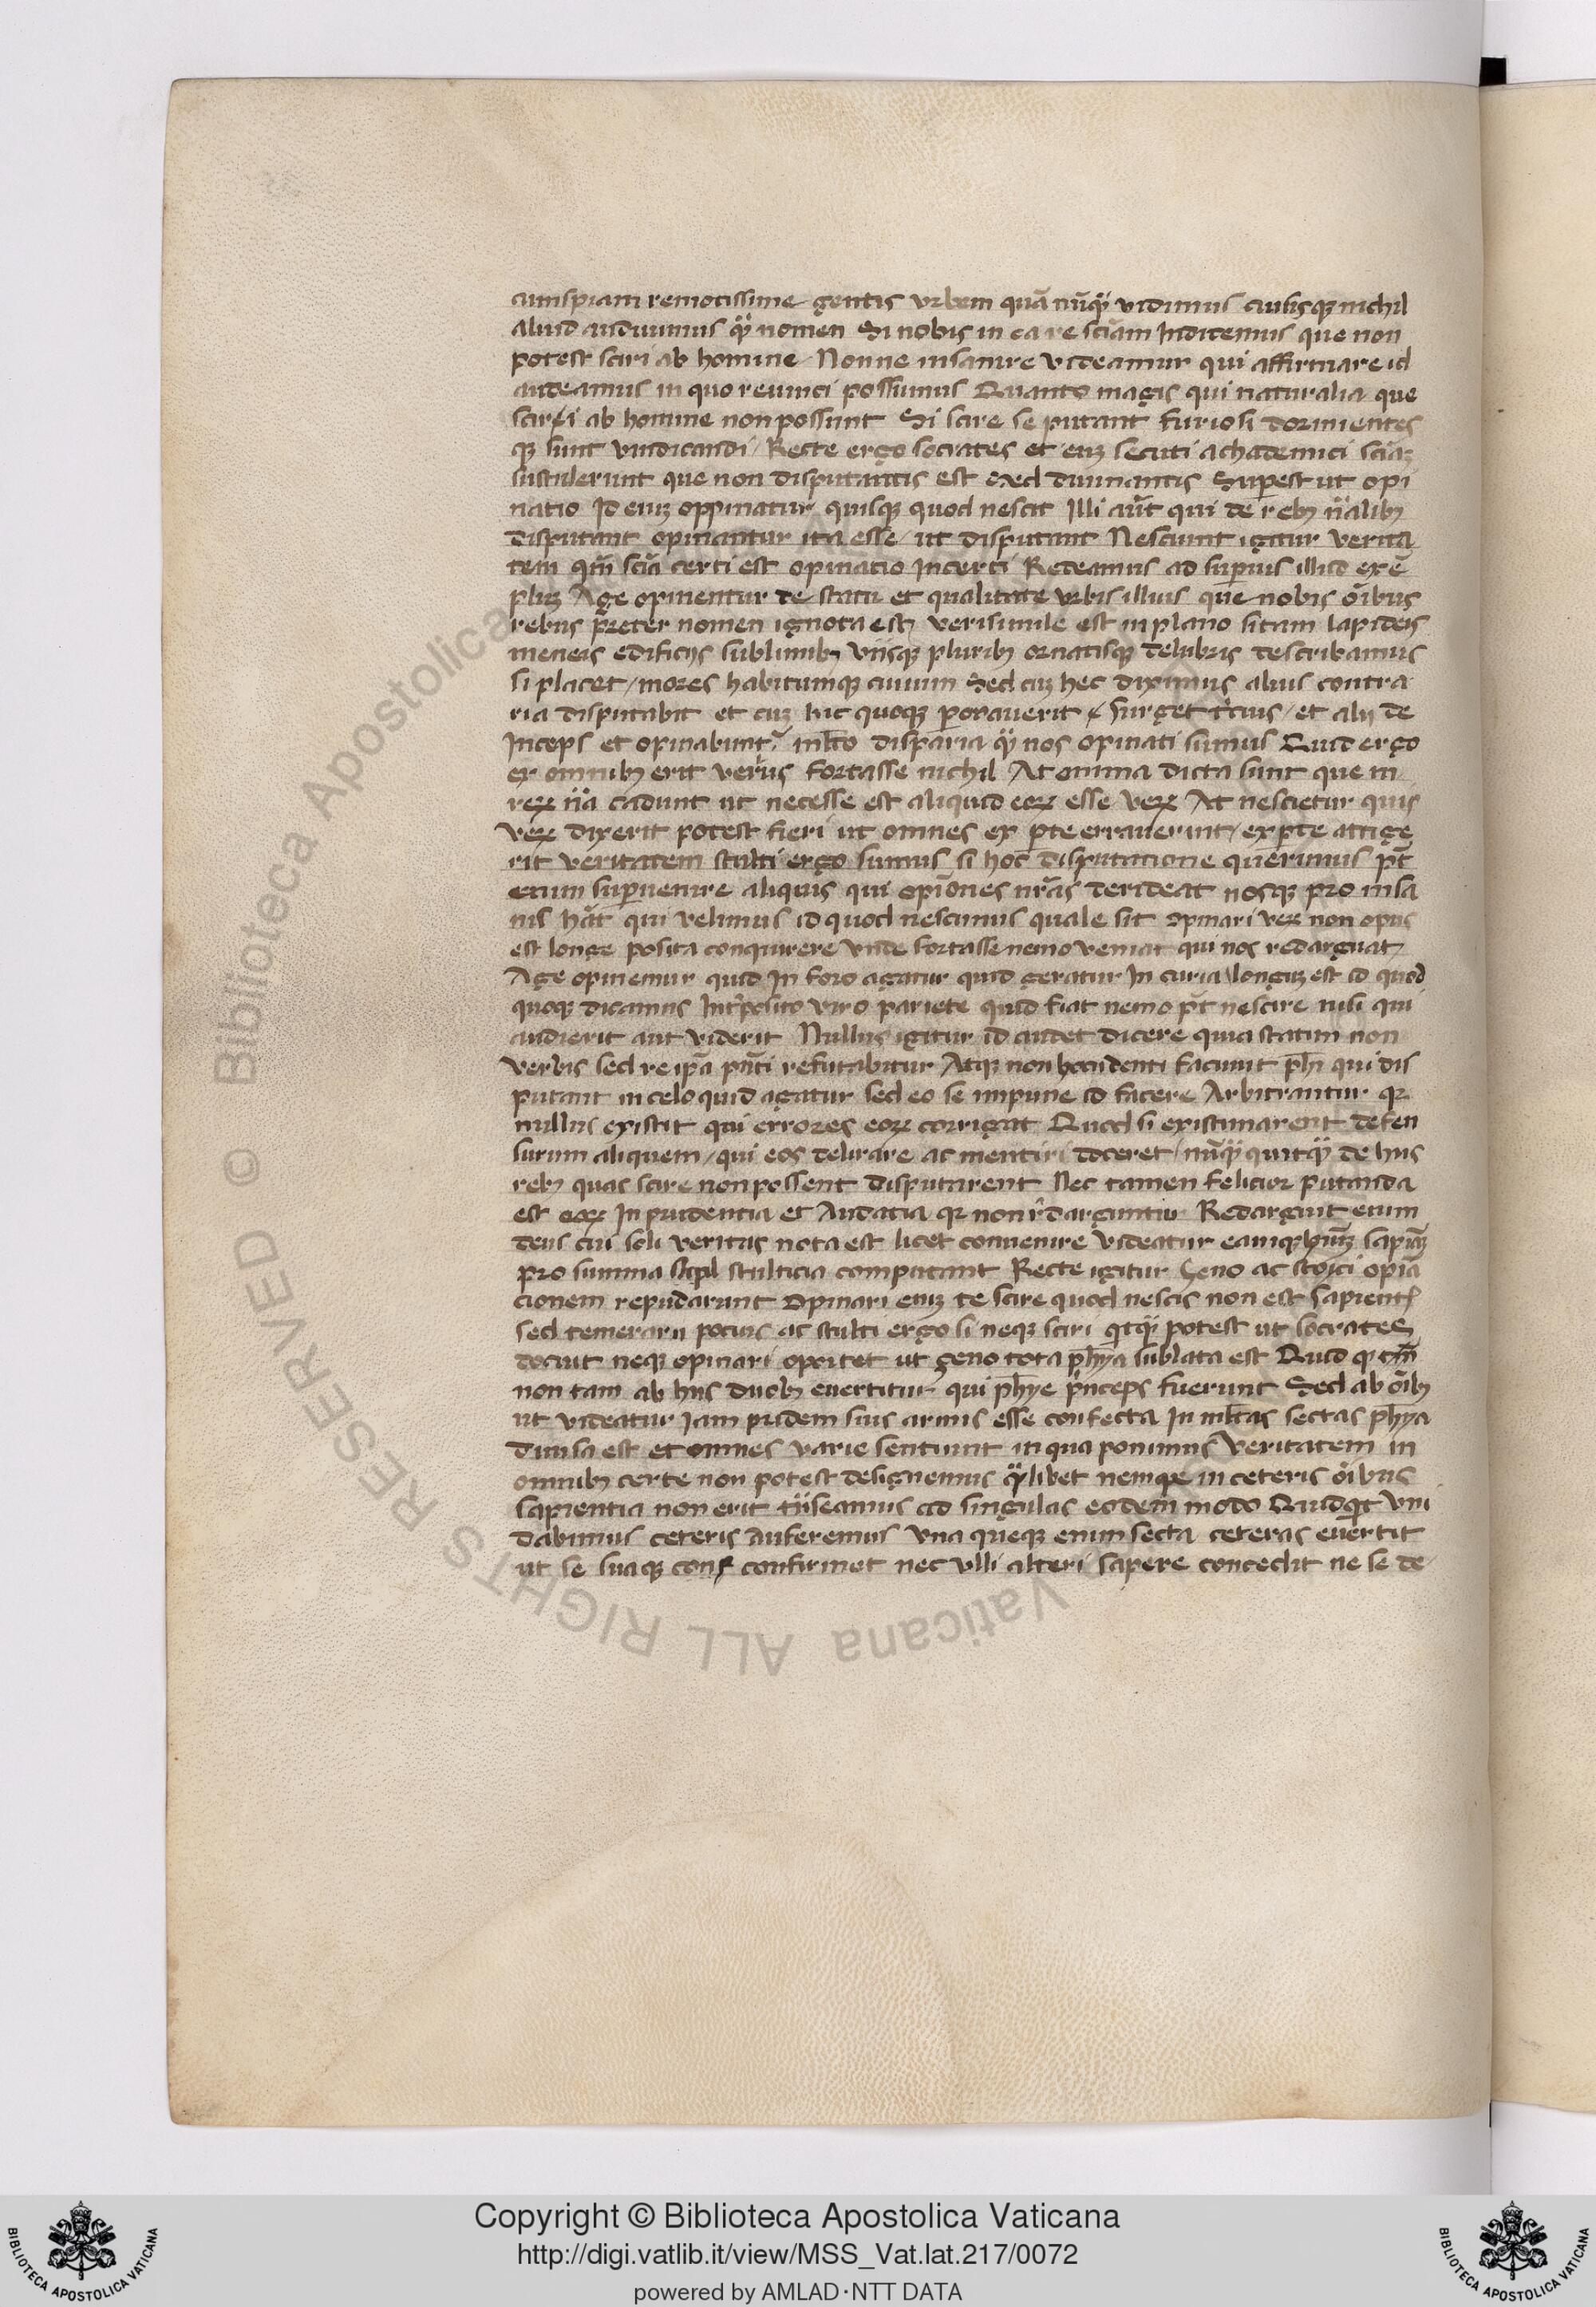 cuiuspiam remotissime gentis urbem quā nūq̄ vidimus cuiusq; nichil
aliud audivimus q̄ nomen Si nobis in ea re sciām Inditemus que non
potest sciri ab homine Nonne insanire videamur qui affirmare id
audeamus in quo revinci possumus Quanto magis qui naturalia que
sciri ab homine non possunt Si scire se putant furiosi dormientes
q; sunt vindicandi Recte ergo socrates et eum secuti achademici sciā;
sustulerunt que non disputantis est sed divinantis Superest ut opi
natio Id enim oppinatur quisq; quod nescit Illi aūt qui de reb; n̄alib;
disputant opinantur ita esse ut disputant Nesciunt igitur verita
tem qm̄ sciā certi est opinatio Incerti Redeamus ad superius illud exē
plum Age opinentur de statu et qualitate urbis illius que nobis oībus
rebus p̄reter nomen ignota est verisimile est in plano sitam lapideis
meneis edificiis sublimib; viisq; plurib; ornatisq; delubris describamus
si placet mores habitumq; civium Sed cum hec diximus alius contra
ria disputabit et cum hic quoq; peroraverit surget tercius et alii de
Inceps et opinabunt̄ mlto disparia q̄ nos opinati sumus Quid ergo
ex omnib; erit verius fortasse nichil At omnia dicta sunt que in
rerum nā cadunt ut necesse est aliquid eorum esse verum At nescietur quis
verum dixerit potest fieri ut omnes ex pte erraverint ex pte attige
rit veritatem stulti ergo sumus si hoc disputatione querimus pt̄
enim supervenire aliquis qui opīones nr̄as derideat nosq; pro insa
nis hāt qui velimus id quod nescimus quale sit opinari verum non opus
est longe posita conquirere unde fortasse nemo veniat qui nos redarguat
Age opinemur quid In foro agatur quid geratur In curia longum est id quod
quoq; dicamus Int̄posito viro pariete quid fiat nemo pt̄ nescire nisi qui
audierit aut viderit Nullus igitur id audet dicere quia statim non
verbis sed re ipā pn̄ti refutabitur Atq; non hoc identi faciunt phī qui dis
putant in celo quid agatur sed eo se impune id facere Arbitrantur q;
nullus existit qui errores eorum corrigat Quod si existimarent defen
surum aliquem qui eos delirare ac mentiri doceret nūq̄ quitq̄ de hiis
reb; quas scire non possent disputarent Nec tamen felicior putanda
est eorum In prudentia et Audatia q; non rīdarguntur Redarguit enim
deus cui soli veritas nota est licet connivere videatur eamq; hūm̄ sapīam
pro summa stulticia computant Recte igitur Zeno ac stoici opīa
cionem repudarunt Opinari enim te scire quod nescis non est sapientis
sed temerarii pocius ac stulti ergo si neq; sciri qitq̄ potest ut socrates
docuit neq; opinari oportet ut zeno tota phȳa sublata est Quid q; tm̄
non tam ab hiis duob; evertitur qui phȳe pīnceps fuerunt Sed ab oīb;
ut videatur Iam pridem suis armis esse confecta In mltas sectas phȳa
divisa est et omnes varie sentiunt in qua ponimus veritatem in
omnib; certe non potest designemus q̄libet nempe in ceteris oībus
sapientia non erit tn̄seamus ad singulas eodem modo Quidqt uni
dabimus ceteris auferemus Una queq; enim secta ceteras evertit
ut se suaq; confirmet nec ulli alteri sapere concedit ne se de
Copyright © Biblioteca Apostolica Vaticana
http://digi.vatlib.it/view/MSS_Vat.lat.217/0072
powered by AMLAD·NTT DATA